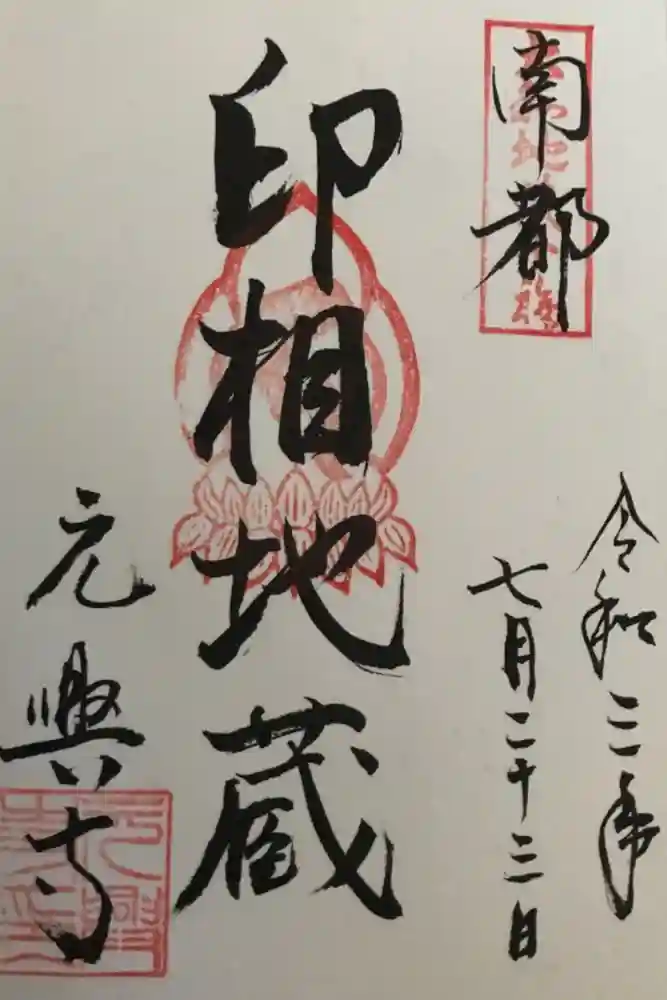 南都
令和三年
七月二十三日
印相地蔵
元興寺